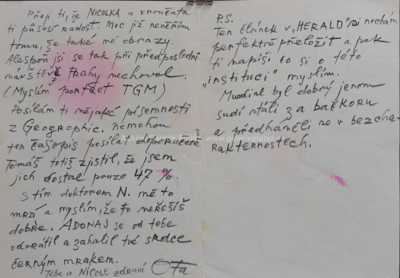 Přeji ti, že NICOLKA a vnoučata
ti působí radost. Moc se nedivím
tomu, že také mé obrazy.
Alespoň jsi se tak při předposlední
návštěvě Prahy nechoval.
(Myslím portrét TGM)
Posílám ti nějaké písemnosti
z Geographic. Nemohou
ten časopis posílat doporučeně
Tomáš totiž zjistil, že jsem
jich dostal pouze 47 %.
S tím doktorem N. mě to
mrzí a myslím, že to neřešíš
dobře. ADONAJ se od tebe
odvrátil a zahalil tvé srdce
černým mrakem.
Tebe a NICOLU zdraví Ota
P.S.
Ten článek v „HERALD" si nechám
perfektně přeložit a pak
ti napíši co si o této
„instituci" myslím.
Mundial byl dobrý jenom
sudí stáli za bačkoru
a předháněli se v bezcha-
rakternostech.